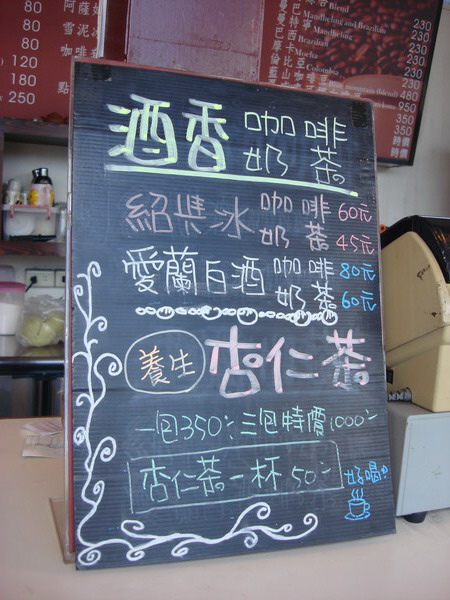 80
80
80
120
180
點
250
阿薩
雪泥
咖啡
Blend
Mandheling and Brazilian
Mandheling
Brazilian
Mocha
Colombia
230
230
230
230
230
230
480
950
350
350
時價
時價
酒香 咖啡
奶茶
紹興冰 咖啡 60元
奶茶 45元
愛蘭白酒 咖啡 80元
奶茶 60元
養生 杏仁茶
一包350 三包特價1000
杏仁茶一杯50
好喝!